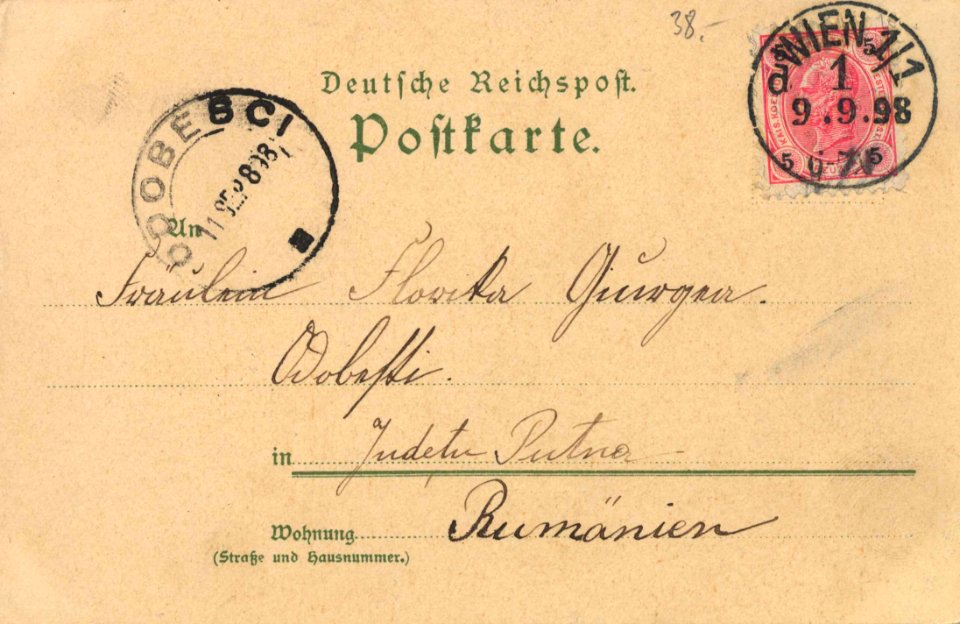 38.-
WIEN 1/1
d 1
9.9.98
5 5
Deutsche Reichspost.
Postkarte.
ODOBESCI
11 SEP 898
An
Fräulein Florika Giurgea.
Odobesti.
in Judetu Putna
Wohnung Rumänien
(Straße und Hausnummer.)